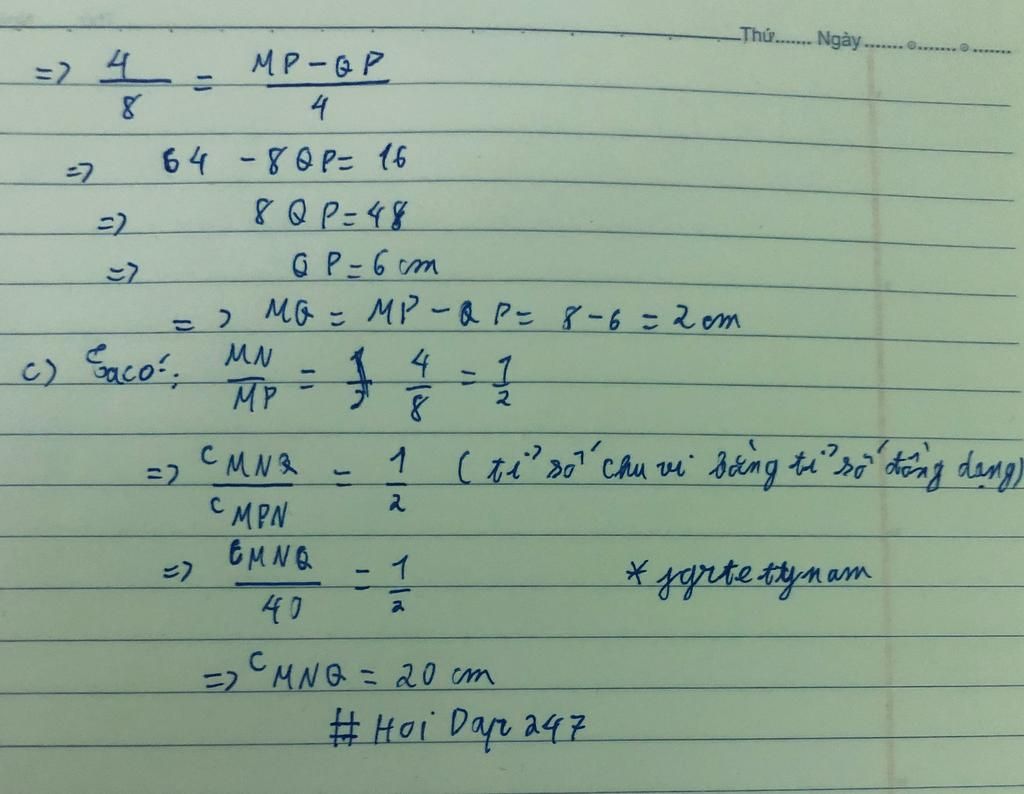 Thứ....... Ngày.......
=> 4/8 = (MP - QP)/4
=> 64 - 8QP = 16
=> 8QP = 48
=> QP = 6 cm
=> MQ = MP - QP = 8 - 6 = 2 cm
c) Ta có: MN/MP = 4/8 = 1/2
=> CMNQ/CMPN = 1/2 (tỉ số chu vi bằng tỉ số đồng dạng)
=> CMNQ/40 = 1/2 *
=> CMNQ = 20 cm
# Hoi Dap 247